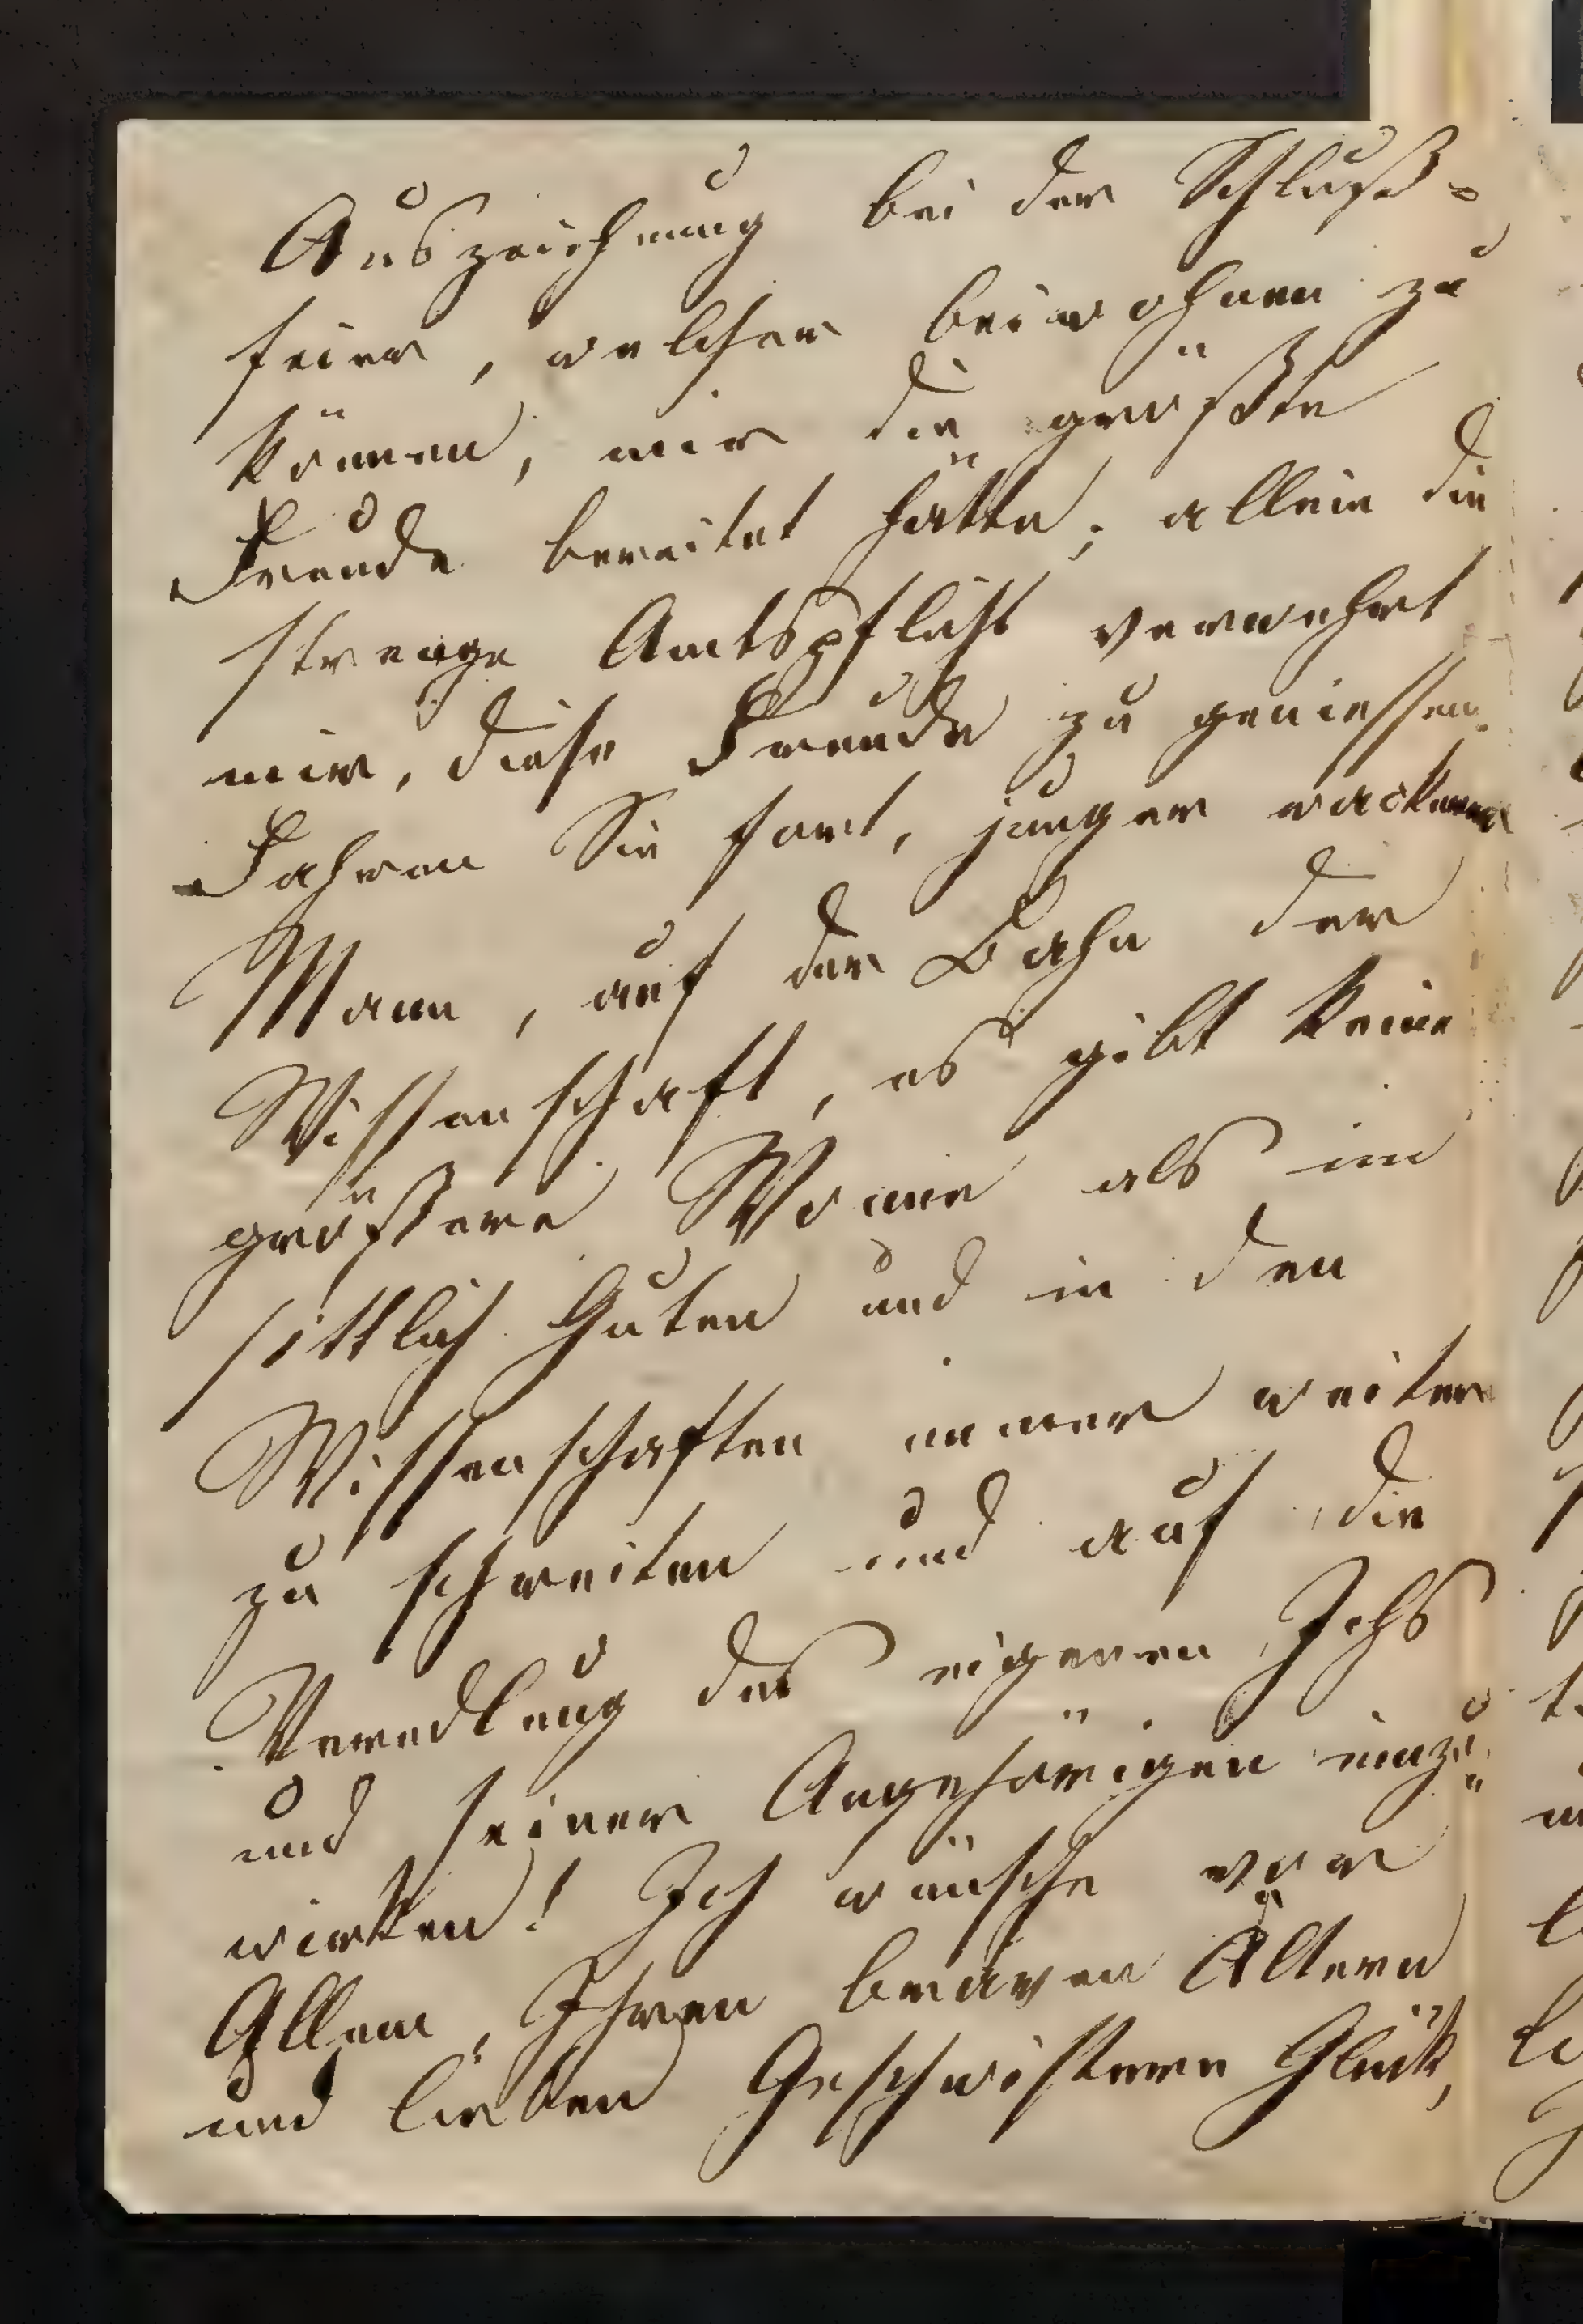 Auszeichnung bei der Schluß=
feier, welcher beiwohnen zu
können, mir die größte
Freude bereitet hätte; allein die
strenge Amtspflicht verwehrt
mir, diese Freude zu geniessen.
Fahren Sie fort, junger wackerer
Mann, auf der Bahn der
Wissenschaft, es gibt keine
größere Wonne als im
sittlich Guten und in den
Wissenschaften immer weiter
zu schreiten und auf die
Veredlung des eigenen Ichs
und seiner Angehörigen einzu„
wirken! Ich wünsche vor
Allem, Ihren braven Ältern
und lieben Geschwistern Glück,